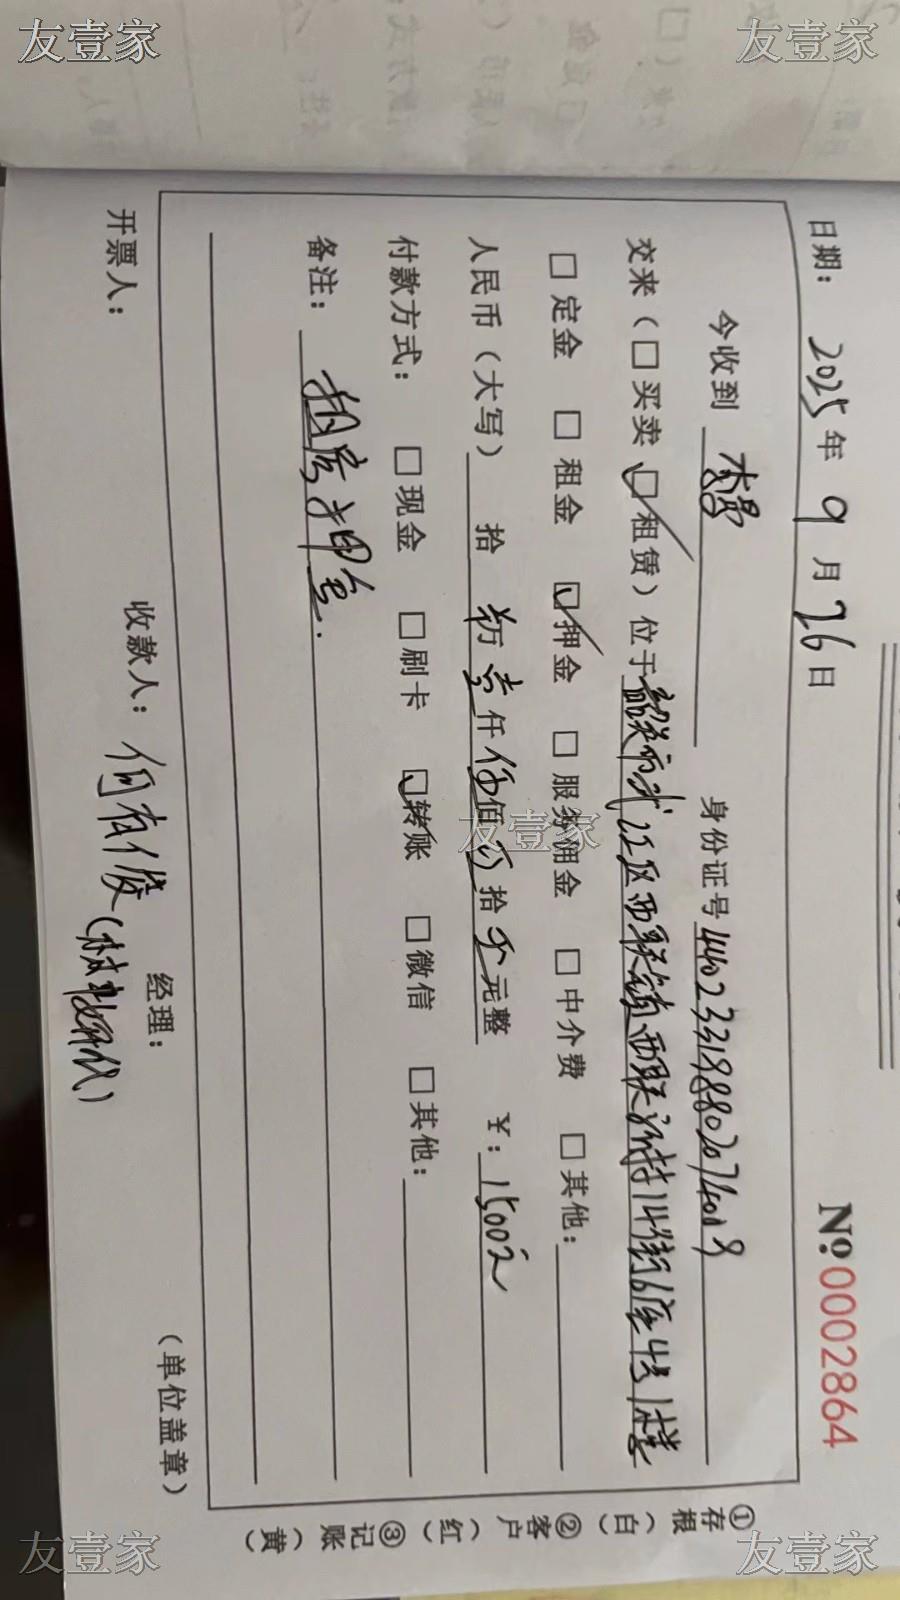 友壹家
友壹家
No:0002864
日期: 2025年9月26日
今收到 李昌 身份证号
交来(□买卖 ☑租赁)位于韶关市武江区西联镇西联沅村14街6座4号1楼
□定金 □租金 ☑押金 □服务佣金 □中介费 □其他:
人民币(大写) 拾 万壹仟伍佰 拾 元整 ¥:1500元
付款方式: □现金 □刷卡 ☑转账 □微信 □其他:
备注: 租房押金.
开票人: 收款人: 何有俊 经理: (单位盖章)
①存根(白) ②客户(红) ③记账(黄)
友壹家
友壹家
友壹家